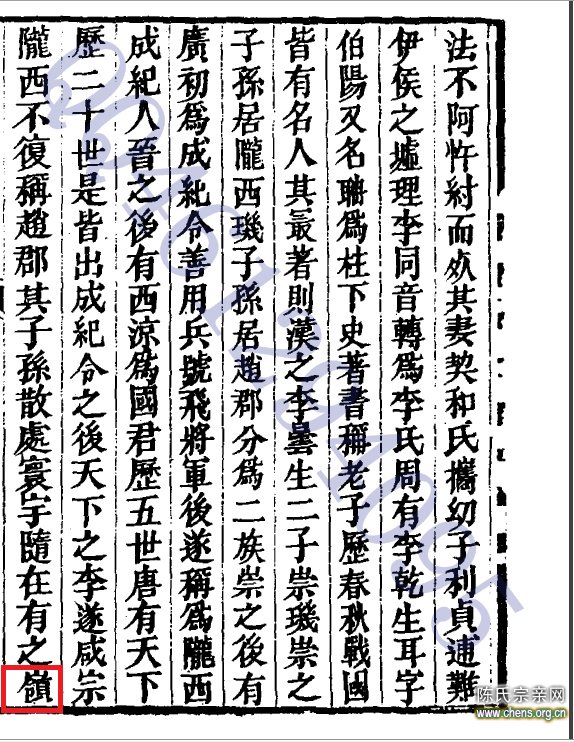 法不阿忤紂而死其妻契和氏攜幼子利貞逋難
伊侯之墟理李同音轉爲李氏周有李乾生耳字
伯陽又名聃爲柱下史著書稱老子歷春秋戰國
皆有名人其最著則漢之李曇生二子崇璣崇之
子孫居隴西璣子孫居趙郡分爲二族崇之後有
廣初爲成紀令善用兵號飛將軍後遂稱爲隴西
成紀人晉之後有西涼爲國君歷五世唐有天下
歷二十世是皆出成紀令之後天下之李遂咸宗
隴西不復稱趙郡其子孫散處寰宇隨在有之嶺
陳氏宗亲网
www.chens.org.cn